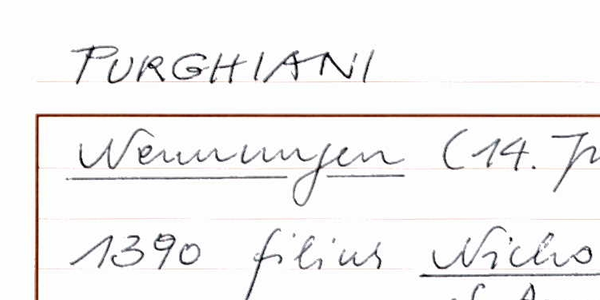 PURGHIANI
Nennungen (14. J
1390 filius Nicho